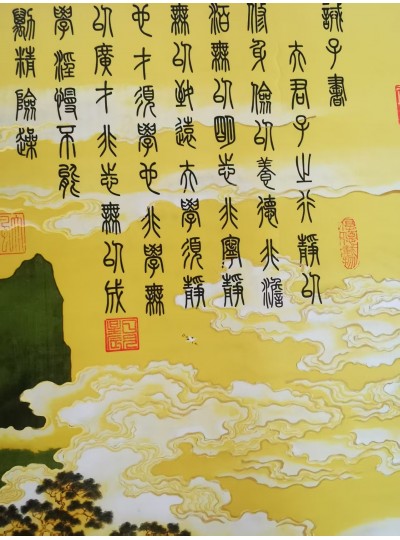 誡子書
夫君子之行靜以
修身儉以養德非澹
泊無以明志非寧靜
無以致遠夫學須靜
也才須學也非學無
以廣才非志無以成
學淫慢不能
勵精險躁